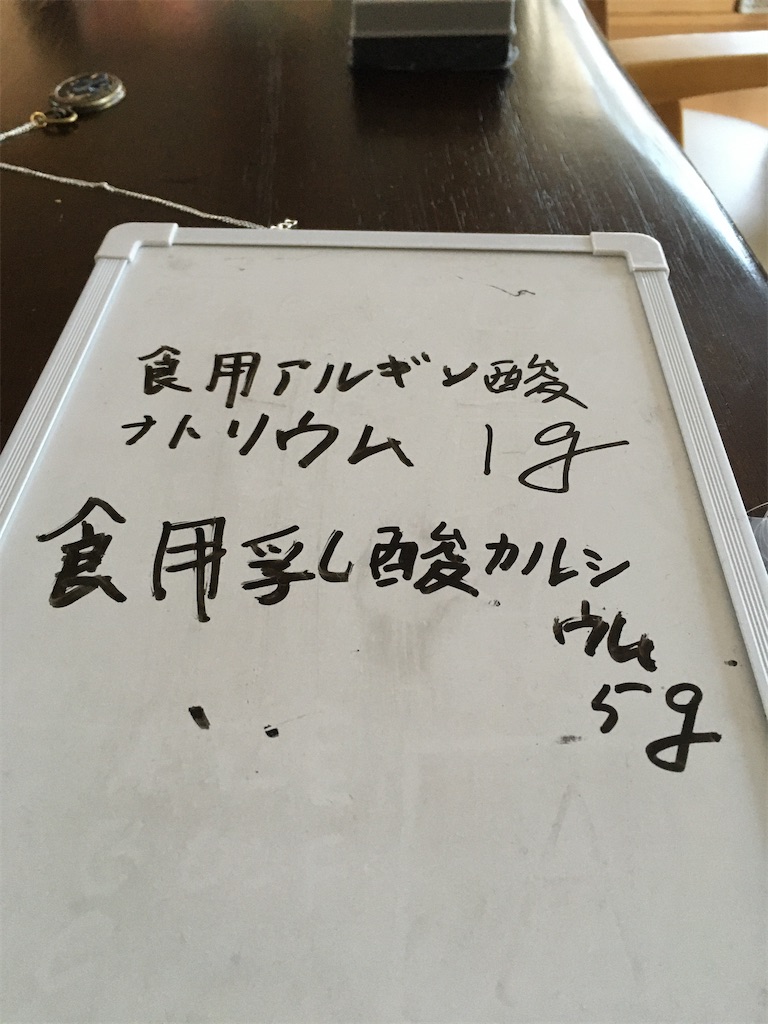 食用アルギン酸
ナトリウム 1g
食用乳酸カルシ
ウム
5g